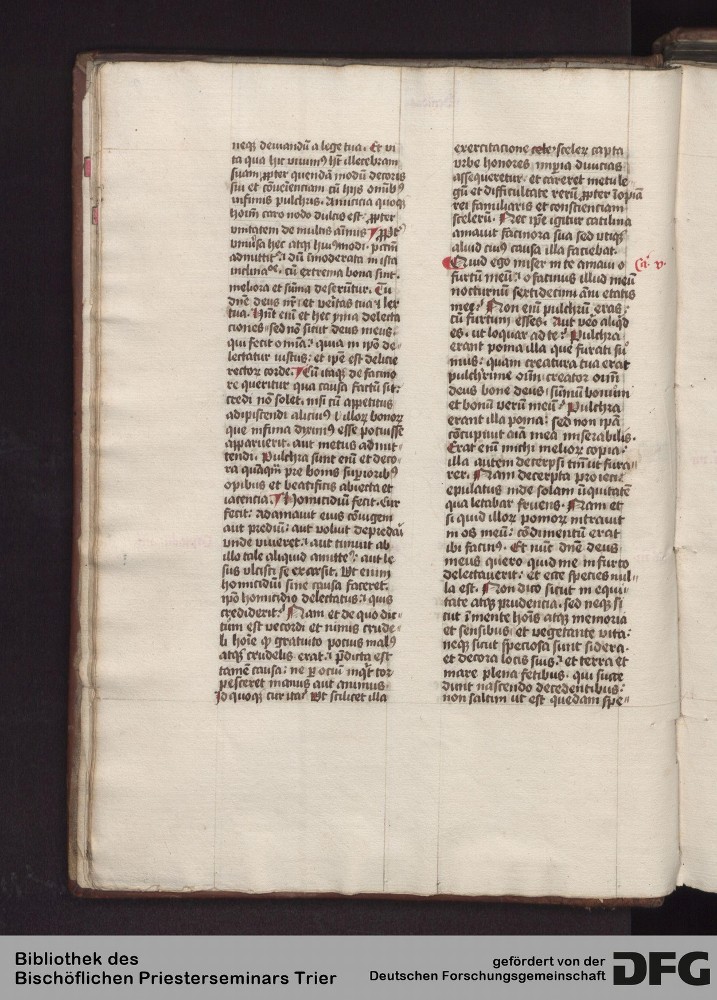 neqꝫ deuiandū a lege tua. Et vi
ta qua hic viuimꝰ hꝫ illecebram
suam ꝓpter quendā modū decoris
sui et cōuenienciam cū hijs omībꝰ
infimis pulchris. Amicicia quoqꝫ
hoīm caro nodo dulcis est ꝓpter
vnitatem de multis aīmis ꝓpt
vniūsa hec atqꝫ hiuꝰmodi pctm̄
admittit᷑ dū īmoderata in ista
inclinaōe, cū extrema bona sint.
meliora et sūma deserūtur. Tu
dn̄e deus nr̄ et veritas tua et lex
tua. Hn̄t enī et hec yma delecta
ciones sed nō sicut deus meus
qui fecit om̄ia: quia in ip̄o de
lectatur iustus: et ip̄e est delicie
rectoꝝ corde. Cū itaqꝫ de facino
re queritur qua causa factū sit:
credi nō solet. nisi cū appetitus
adipiscendi alicuiꝰ illoꝝ bonoꝝ
que infima diximꝰ esse potuisse
apparuerit. aut metus admit
tendi. Pulchra sunt enī et deco
ra quāqm̄ pre bonis suꝑioribꝰ
opibus et beatificis abiecta et
iacentia. Homicidiū fecit. Cur
fecit: adamauit eius cōiugem
aut prediū: aut voluit depredari
vnde viueret: aut timuit ab
illo tale aliquid amitte᷑: aut le
sus vlcisci se exarsit. Vt enim
homicidiū sine causa faceret.
ip̄o homicidio delectatus: quis
crediderit: Nam et de quo dic
tum est vecordi et nimis crude
li hoīe ꝙ gratuito potius malꝰ
atqꝫ crudelis erat: p̄dicta est
tamē causa: ne ꝑ ociū inqͥt tor
pesceret manus aut animus
Id quoqꝫ cur ita: Vt scilicet illa
exercitacione scele sceleꝝ capta
vrbe honores imꝑia diuicias
assequeretur. et careret metu le
gū et difficultate rerū ꝓpter īopiā
rei familiaris et conscienciam
sceleꝝ. Nec ip̄e igitur catilina
amauit facinora sua sed vtiqꝫ
aliud cuiꝰ causa illa faciebat.
Quid ego miser in te amaui o
furtū meū: o facinus illud meū
nocturnū sextidecimi āni etatis
mee: Non enī pulchrū eras
cū furtum esses. Aut vero aliqd̄
es. vt loquar ad te: Pulchra
erant poma illa que furati su
mus: quam creatura tua erat
pulchrime oīm creator oīm
deus bone deus sūmū bonum
et bonū verū meū: Pulchra
erant illa poma: sed non ip̄a
cōcupiuit aīa mea miserabilis.
Erat enī michi melioꝝ copia:
illa autem decerpsi tm̄ vt fura
rer. Nam decerpta proieci:
epulatus inde solam īiquitatē
qua letabar fruens. Nam et
si quid illoꝝ pomoꝝ intrauit
in os meū: cōdimentū erat
ibi facinꝰ. Et nūc dn̄e deus
meus quero quid me in furto
delectauerit: et ecce species nul
la est. Non dico sicut in equi
tate atqꝫ prudencia. sed neqꝫ si
cut ī mente hoīs atqꝫ memoria
et sensibus et vegetante vita:
neqꝫ sicut speciosa sunt sidera
et decora locis suis: et terra et
mare plena fetibus. qui succe
dunt nascendo decedentibus:
non saltim vt est quedam spe
Ca. v.
Bibliothek des
Bischöflichen Priesterseminars Trier
gefördert von der
Deutschen Forschungsgemeinschaft
DFG